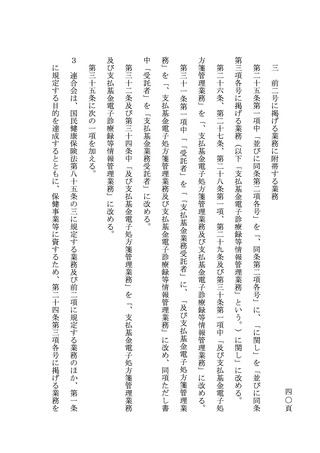 四〇頁
三　前二号に掲げる業務に附帯する業務
第二十五条第一項中「並びに同条第二項各号」を「、同条第二項各号」に、「に関し」を「並びに同条
第三項各号に掲げる業務（以下「支払基金電子診療録等情報管理業務」という。）に関し」に改める。
第二十六条、第二十七条、第二十八条第一項、第二十九条及び第三十条第一項中「及び支払基金電子処
方箋管理業務」を「、支払基金電子処方箋管理業務及び支払基金電子診療録等情報管理業務」に改める。
第三十一条第一項中「受託者」を「支払基金業務受託者」に、「及び支払基金電子処方箋管理業
務」を「、支払基金電子処方箋管理業務及び支払基金電子診療録等情報管理業務」に改め、同項ただし書
中「受託者」を「支払基金業務受託者」に改める。
第三十二条及び第三十四条中「及び支払基金電子処方箋管理業務」を「、支払基金電子処方箋管理業務
及び支払基金電子診療録等情報管理業務」に改める。
第三十五条に次の一項を加える。
３　連合会は、国民健康保険法第八十五条の三に規定する業務及び前二項に規定する業務のほか、第一条
に規定する目的を達成するとともに、保健事業等に資するため、第二十四条第三項各号に掲げる業務を